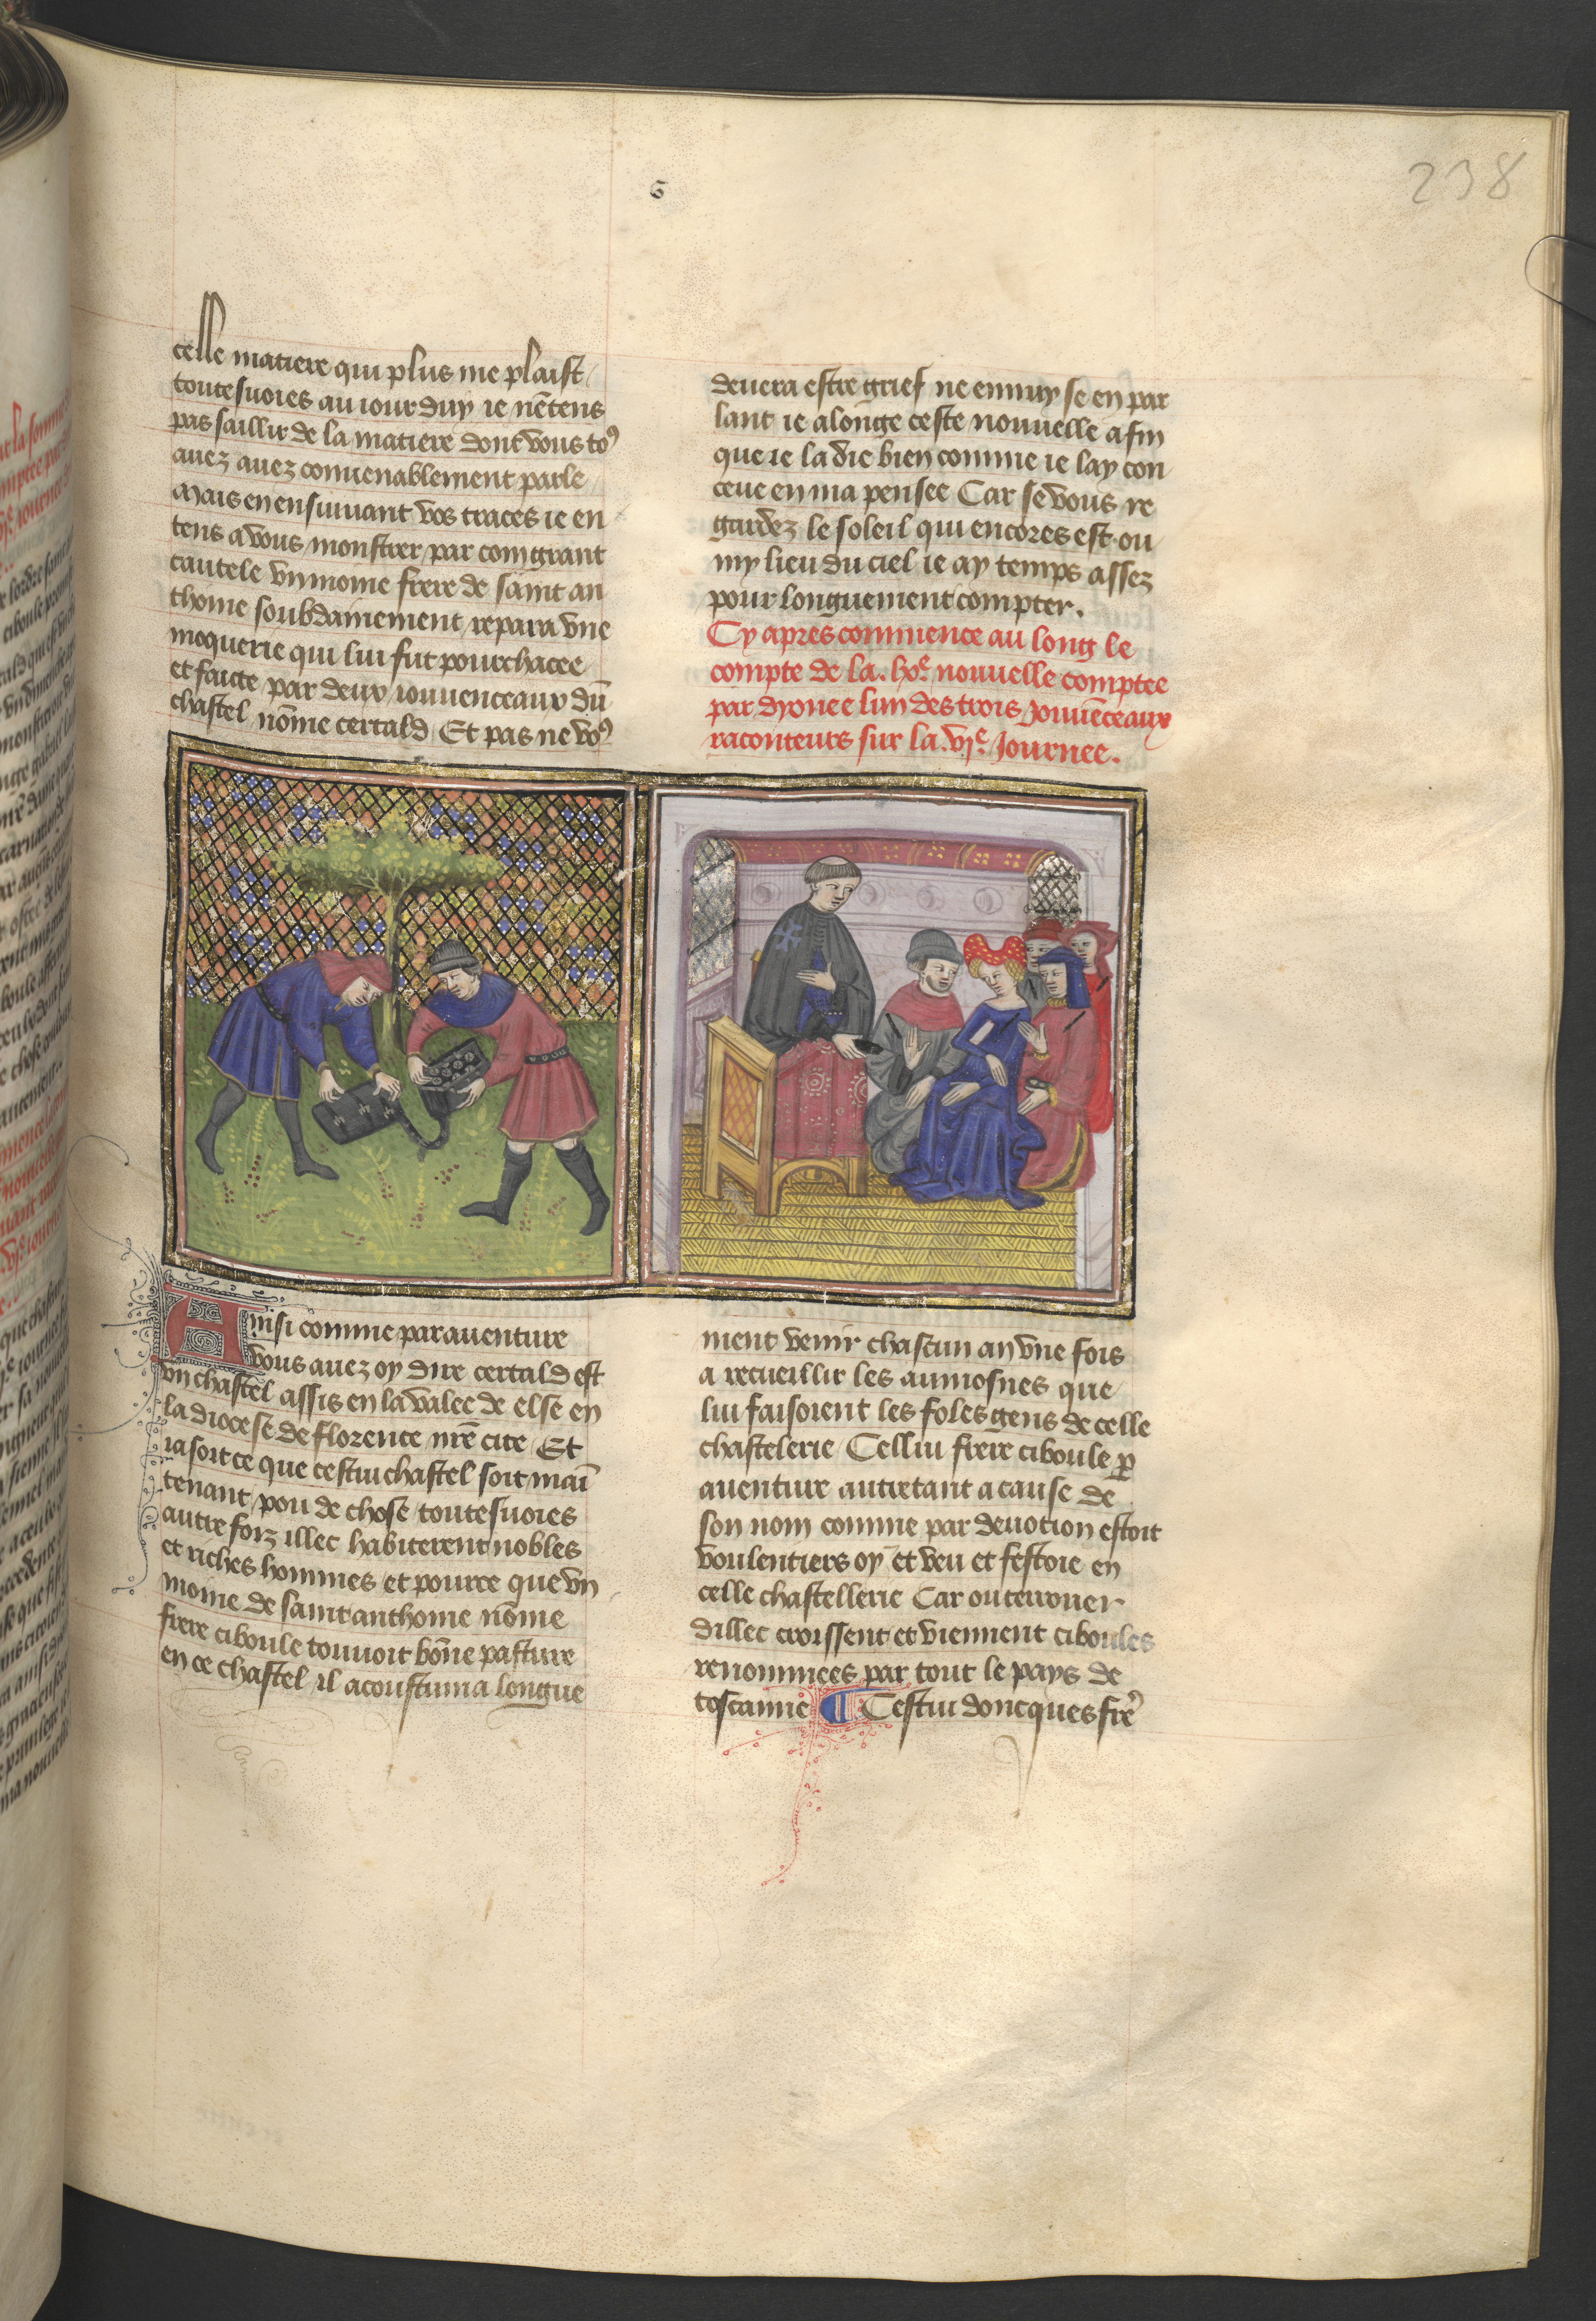 6
238
celle matiere qui plus me plaist
toutesuoies au iour duy ie nētens
pas saillir de la matiere dont vous to⁹
auez auez conuenablement parle
Mais en ensuiuant vos traces ie en
tens a vous monstrer par com grant
cautele vn moine frere de saint an
thoine soubdainement repara vne
moquerie qui lui fut pourchacee
et faicte par deux iouuenceaux dū
chastel nōme certald Et pas ne vo⁹
deuera estre grief ne ennuy se en par
lant ie alonge ceste nouuelle afin
que ie la die bien comme ie lay con
ceue en ma pensee Car se vous re
gardez le soleil qui encores est ou
my lieu du ciel ie ay temps assez
pour longuement compter.
Cy apres commence au long le
compte de la .lxᵉ nouuelle comptee
par dyonee lun des trois Jouuēceaux
raconteurs sur la .vjᵉ. Journee.
Ainsi comme par auenture
vous auez oy dire certald est
vn chastel assis en la valee de else en
la diocese de florence nr̄e cite Et
ia soit ce que cestui chastel soit mai̅
tenant pou de chose toutesuoies
autre foiz illec habiterent nobles
et riches hommes et pource que vn
moine de saint anthoine nōme
frere ciboule touuoit bōne pasture
en ce chastel il acoustuma longue
ment venir chascun an vne fois
a recueillir les aumosnes que
lui faisoient les foles gens de celle
chastelerie Cellui frere ciboule ꝑ
auenture autretant a cause de
son nom comme par deuotion estoit
voulentiers oy et veu et festoie en
celle chastellerie Car ou terrouer
dillec croissent et viennent ciboules
renommees par tout le pays de
toscanne ¶ Cestui doncques fre᷑